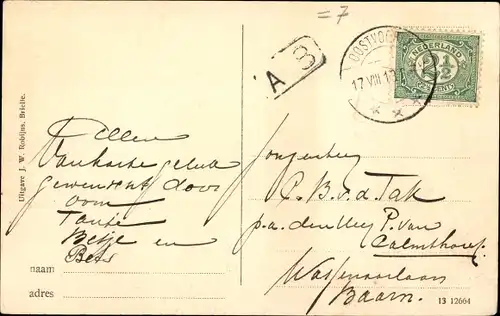 = 7
A 3
OOSTVOO
17 VIII 1
NEDERLAND
2½
CENT
Uitgave J. W. Robijns, Brielle.
Allen
Van harte geluk
gewenscht door
oom
Tante
Betje en
Bets
naam
adres
Jongenheer
C. B. v. d. Tak
p.a. den Heer P. van
Calmthout
Wassenaarlaan
Baarn.
13 12604